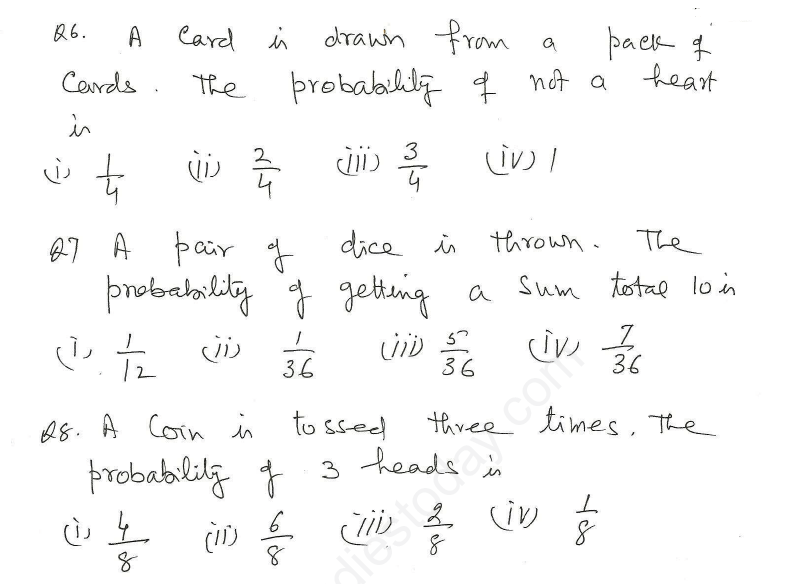 Q6. A Card is drawn from a pack of
Cards. The probability of not a heart
is
(i) 1/4 (ii) 2/4 (iii) 3/4 (iv) 1
Q7 A pair of dice is thrown. The
probability of getting a sum total 10 is
(i) 1/12 (ii) 1/36 (iii) 5/36 (iv) 7/36
Q8. A Coin is tossed three times. The
probability of 3 heads is
(i) 4/8 (ii) 6/8 (iii) 2/8 (iv) 1/8
diestoday.com